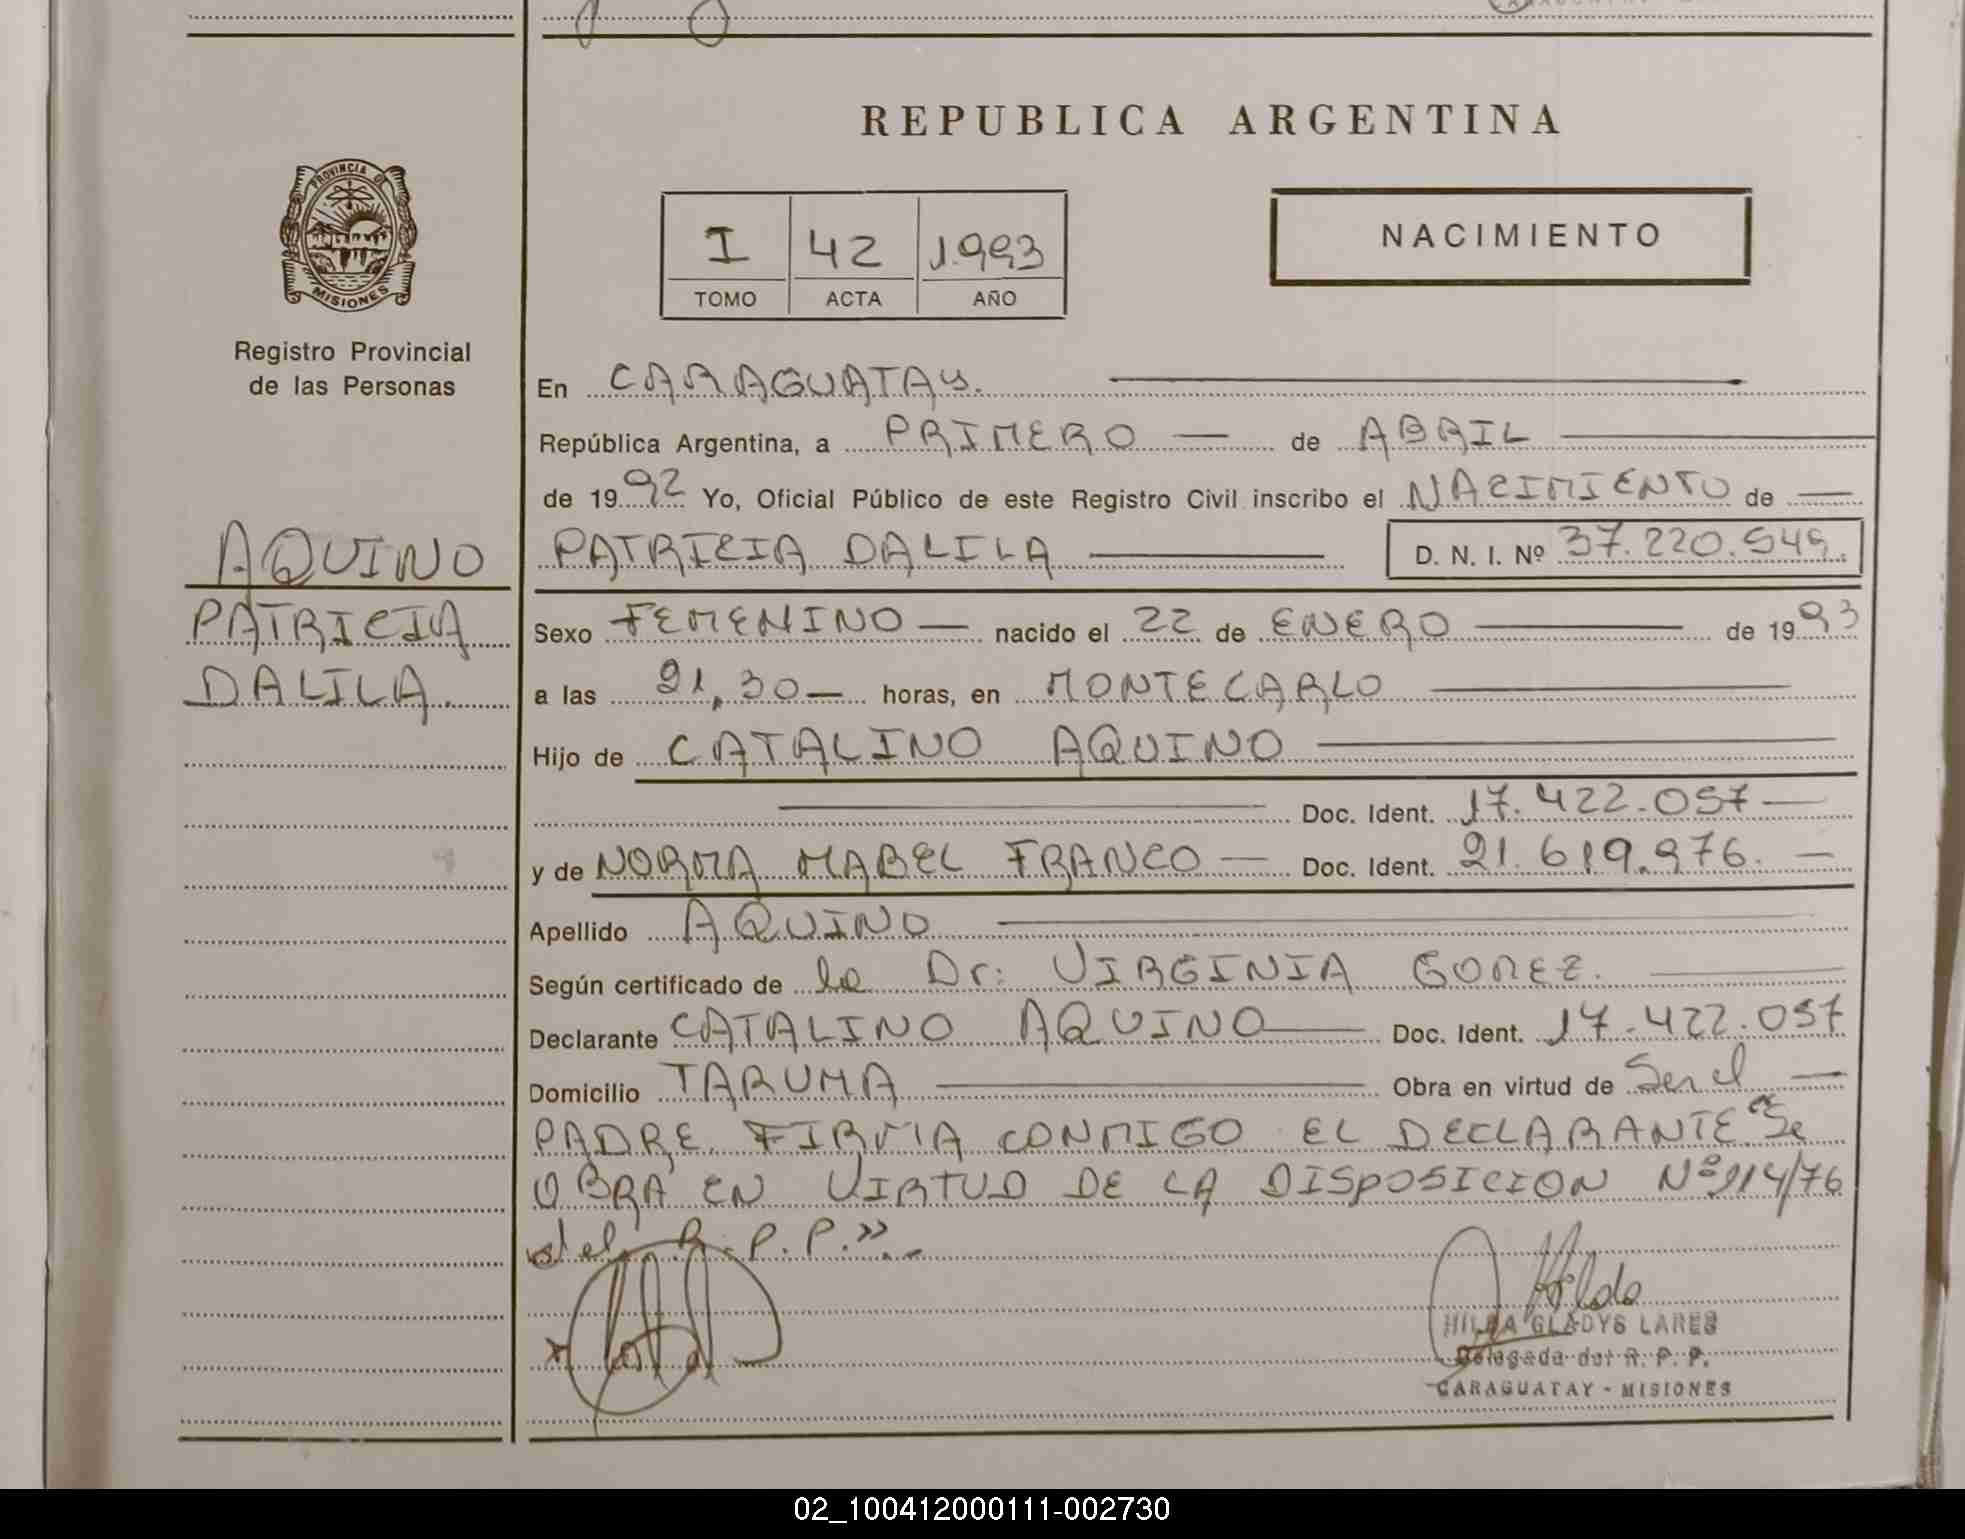 REPUBLICA ARGENTINA
PROVINCIA DE
MISIONES
I 42 1993
TOMO ACTA AÑO
NACIMIENTO
Registro Provincial
de las Personas
En CARAGUATAY.
República Argentina, a PRIMERO — de ABRIL
de 1992 Yo, Oficial Público de este Registro Civil inscribo el NACIMIENTO de —
AQUINO
PATRICIA
DALILA.
PATRICIA DALILA D. N. I. Nº 37.220.549.
Sexo FEMENINO — nacido el 22 de ENERO de 1993
a las 21,30 — horas, en MONTECARLO
Hijo de CATALINO AQUINO
Doc. Ident. 17.422.057 —
y de NORMA MABEL FRANCO — Doc. Ident. 21.619.976. —
Apellido AQUINO
Según certificado de la Dr: VIRGINIA GOMEZ.
Declarante CATALINO AQUINO — Doc. Ident. 17.422.057
Domicilio TARUMA Obra en virtud de Ser el —
PADRE. FIRMA CONMIGO EL DECLARANTE "Se
OBRA EN VIRTUD DE LA DISPOSICION Nº 114/76
del R.P.P.".-
Hilda
HILDA GLADYS LARES
Delegada del R. P. P.
CARAGUATAY - MISIONES
02_100412000111-002730